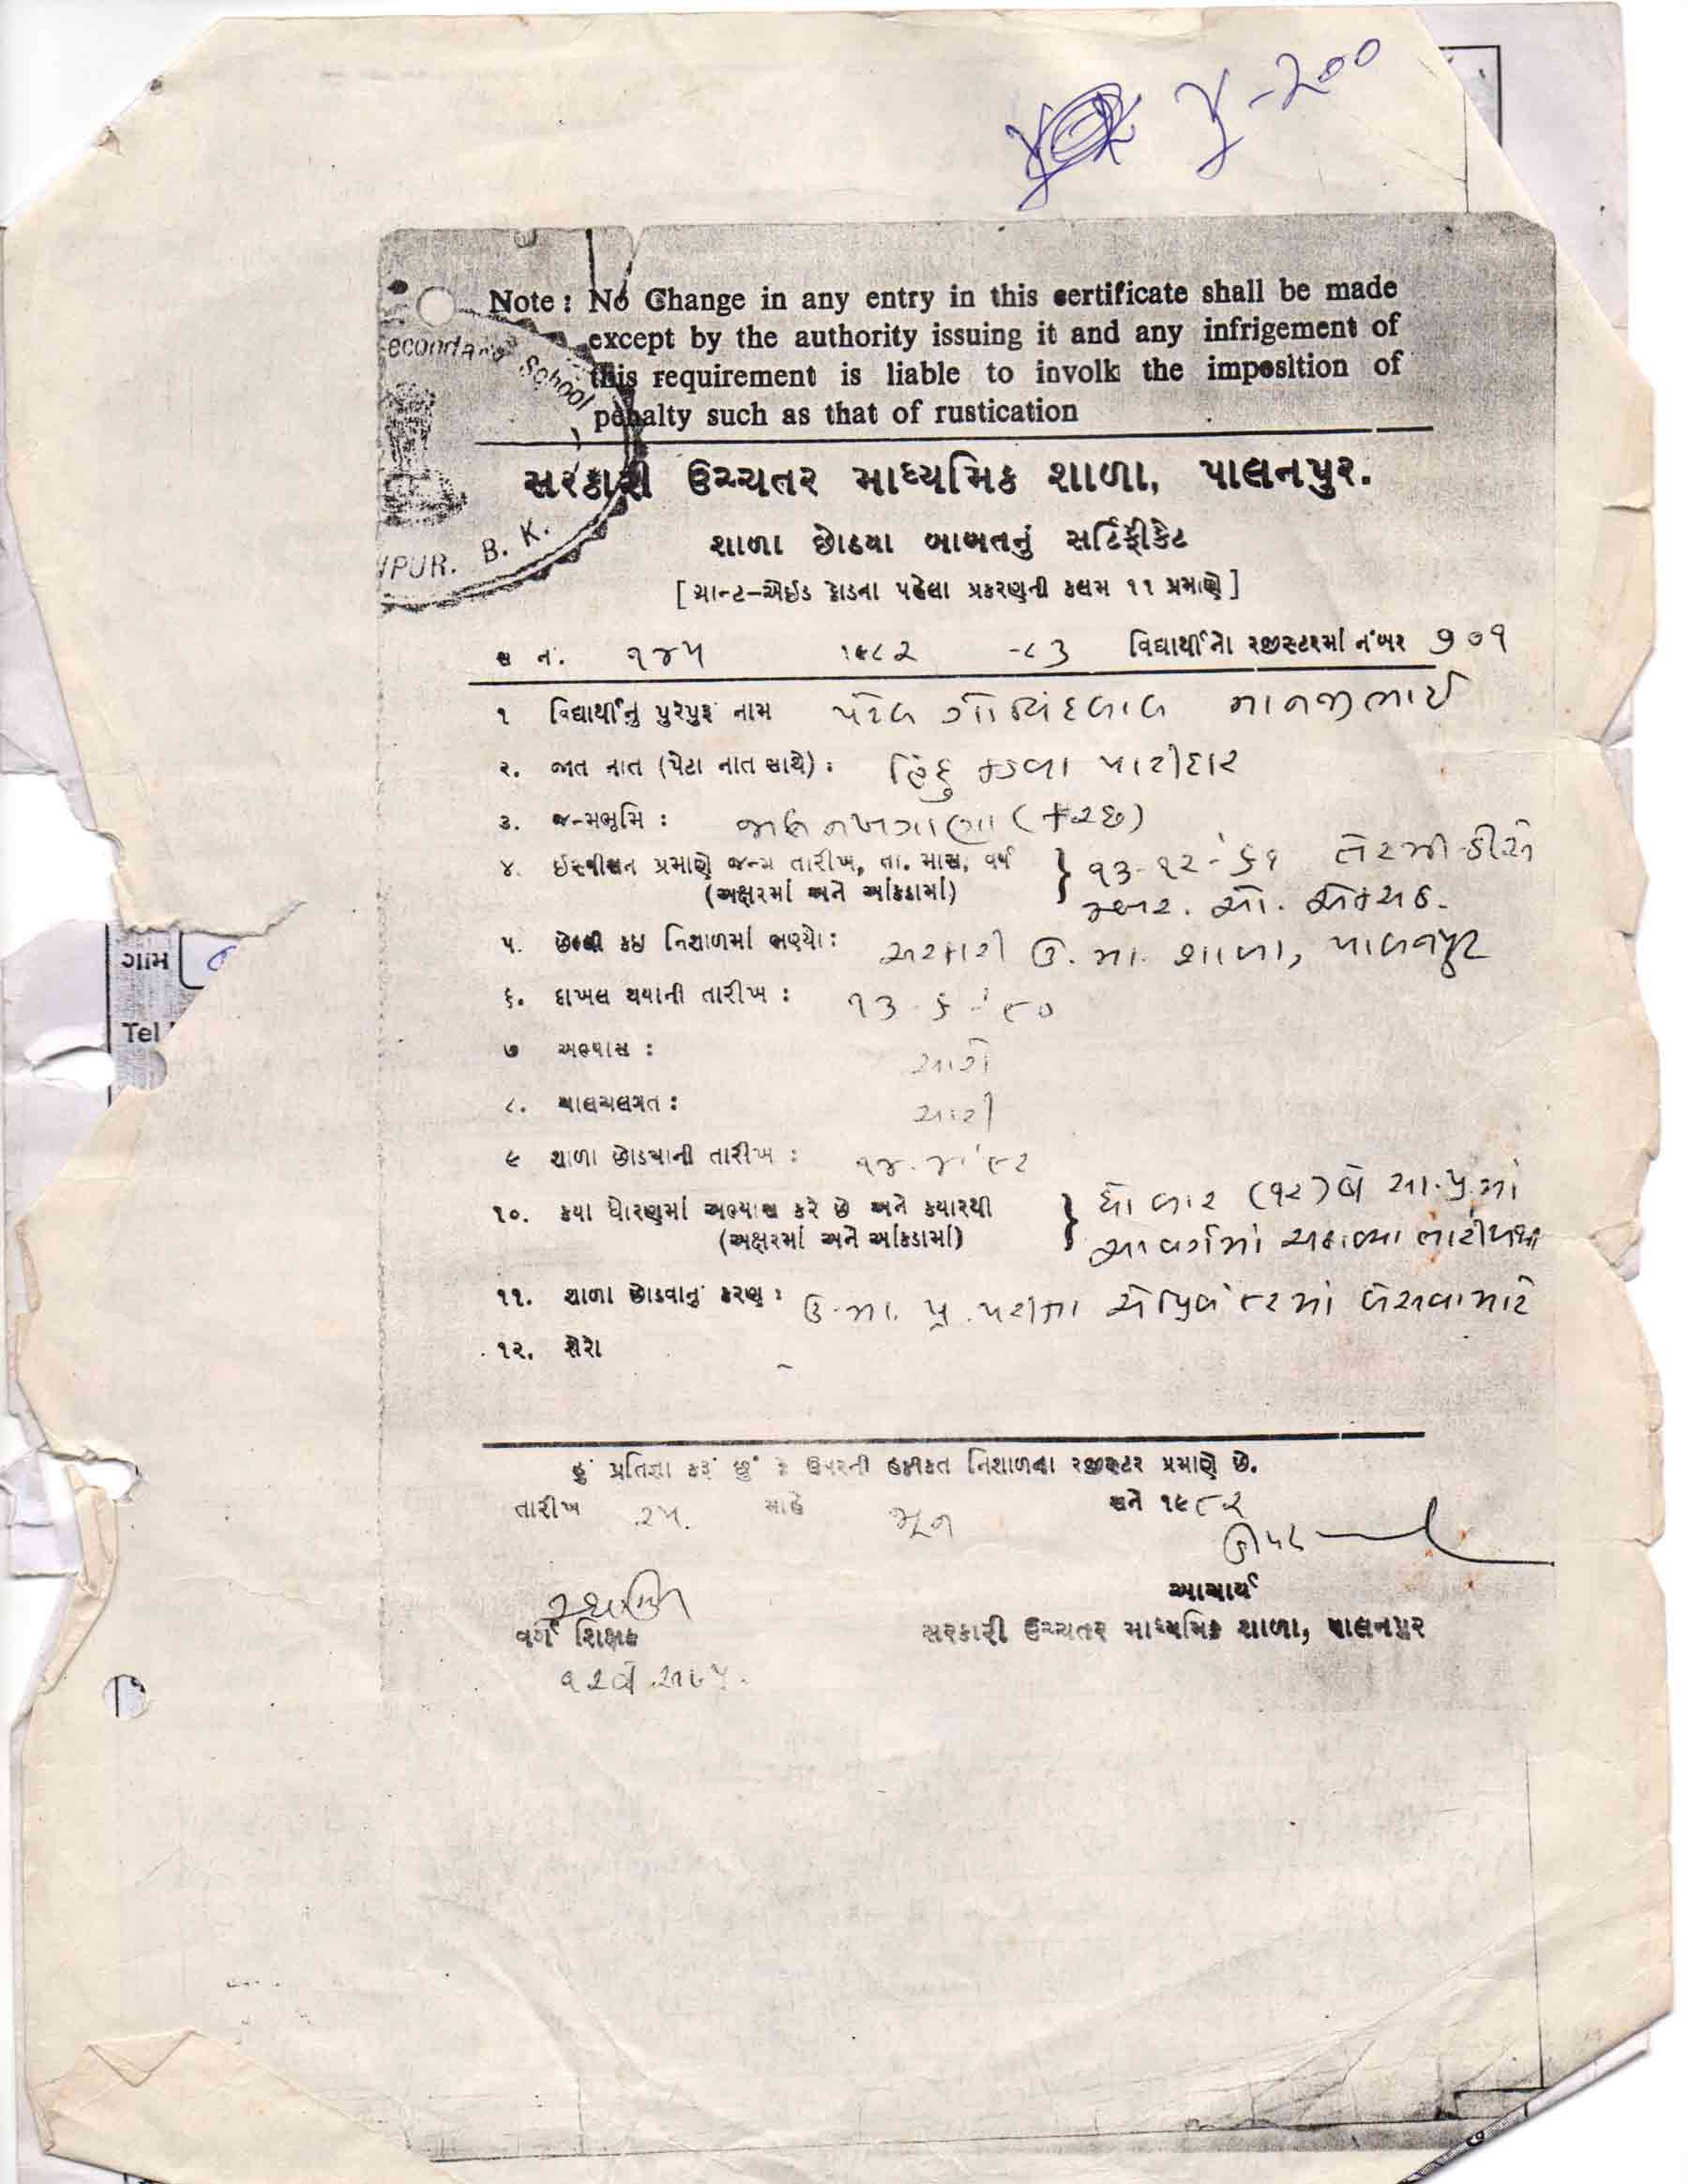 મુ-૨૦૦
Note : No Change in any entry in this certificate shall be made
except by the authority issuing it and any infrigement of
this requirement is liable to involk the imposition of
penalty such as that of rustication
econdary School
NPUR. B. K.
સરકારી ઉચ્ચતર માધ્યમિક શાળા, પાલનપુર.
શાળા છોડયા બાબતનું સર્ટિફીકેટ
[ ગ્રાન્ટ-એઈડ કોડના પહેલા પ્રકરણની કલમ ૧૧ પ્રમાણે ]
સ નં. ૧૪૫ ૧૯૮૨ -૮૩ વિદ્યાર્થીનો રજીસ્ટરમાં નંબર ૭૦૧
૧ વિદ્યાર્થીનું પુરેપુરૂ નામ પટેલ ગોવિંદલાલ માનજીભાઈ
૨. જાત નાત (પેટા નાત સાથે) : હિંદુ કડવા પાટીદાર
૩. જન્મભૂમિ : નખત્રાણા (કચ્છ)
૪. ઈસ્વીસન પ્રમાણે જન્મ તારીખ, તા. માસ, વર્ષ } ૧૩-૧૨-'૬૧ તેરમી ડીસે
(અક્ષરમાં અને આંકડામાં) મ્બર. ઓ. એકસઠ.
૫. છેલ્લી કઇ નિશાળમાં ભણ્યો : સરકારી ઉ. મા. શાળા, પાલનપુર
૬. દાખલ થયાની તારીખ : ૧૩-૬-'૮૦
૭ અભ્યાસ : સારો
૮. ચાલચલગત : સારી
૯ શાળા છોડયાની તારીખ : ૧૪-૪-'૮૨
૧૦. કયા ધોરણમાં અભ્યાસ કરે છે અને કયારથી } ધો બાર (૧૨) બ સા.પ્ર.માં
(અક્ષરમાં અને આંકડામાં)
૧૧. શાળા છોડવાનું કરણ : ઉ.મા. પ્ર. પરીક્ષા એપ્રિલ ૮૨માં બેસવા માટે
૧૨. શેરો -
હું પ્રતિજ્ઞા કરૂં છું કે ઉપરની હકીકત નિશાળના રજીસ્ટર પ્રમાણે છે.
તારીખ ૨૫. માહે જૂન સને ૧૯૮૨
આચાર્ય
વર્ગ શિક્ષક
સરકારી ઉચ્ચતર માધ્યમિક શાળા, પાલનપુર
૧૨બ
ગામ
Tel